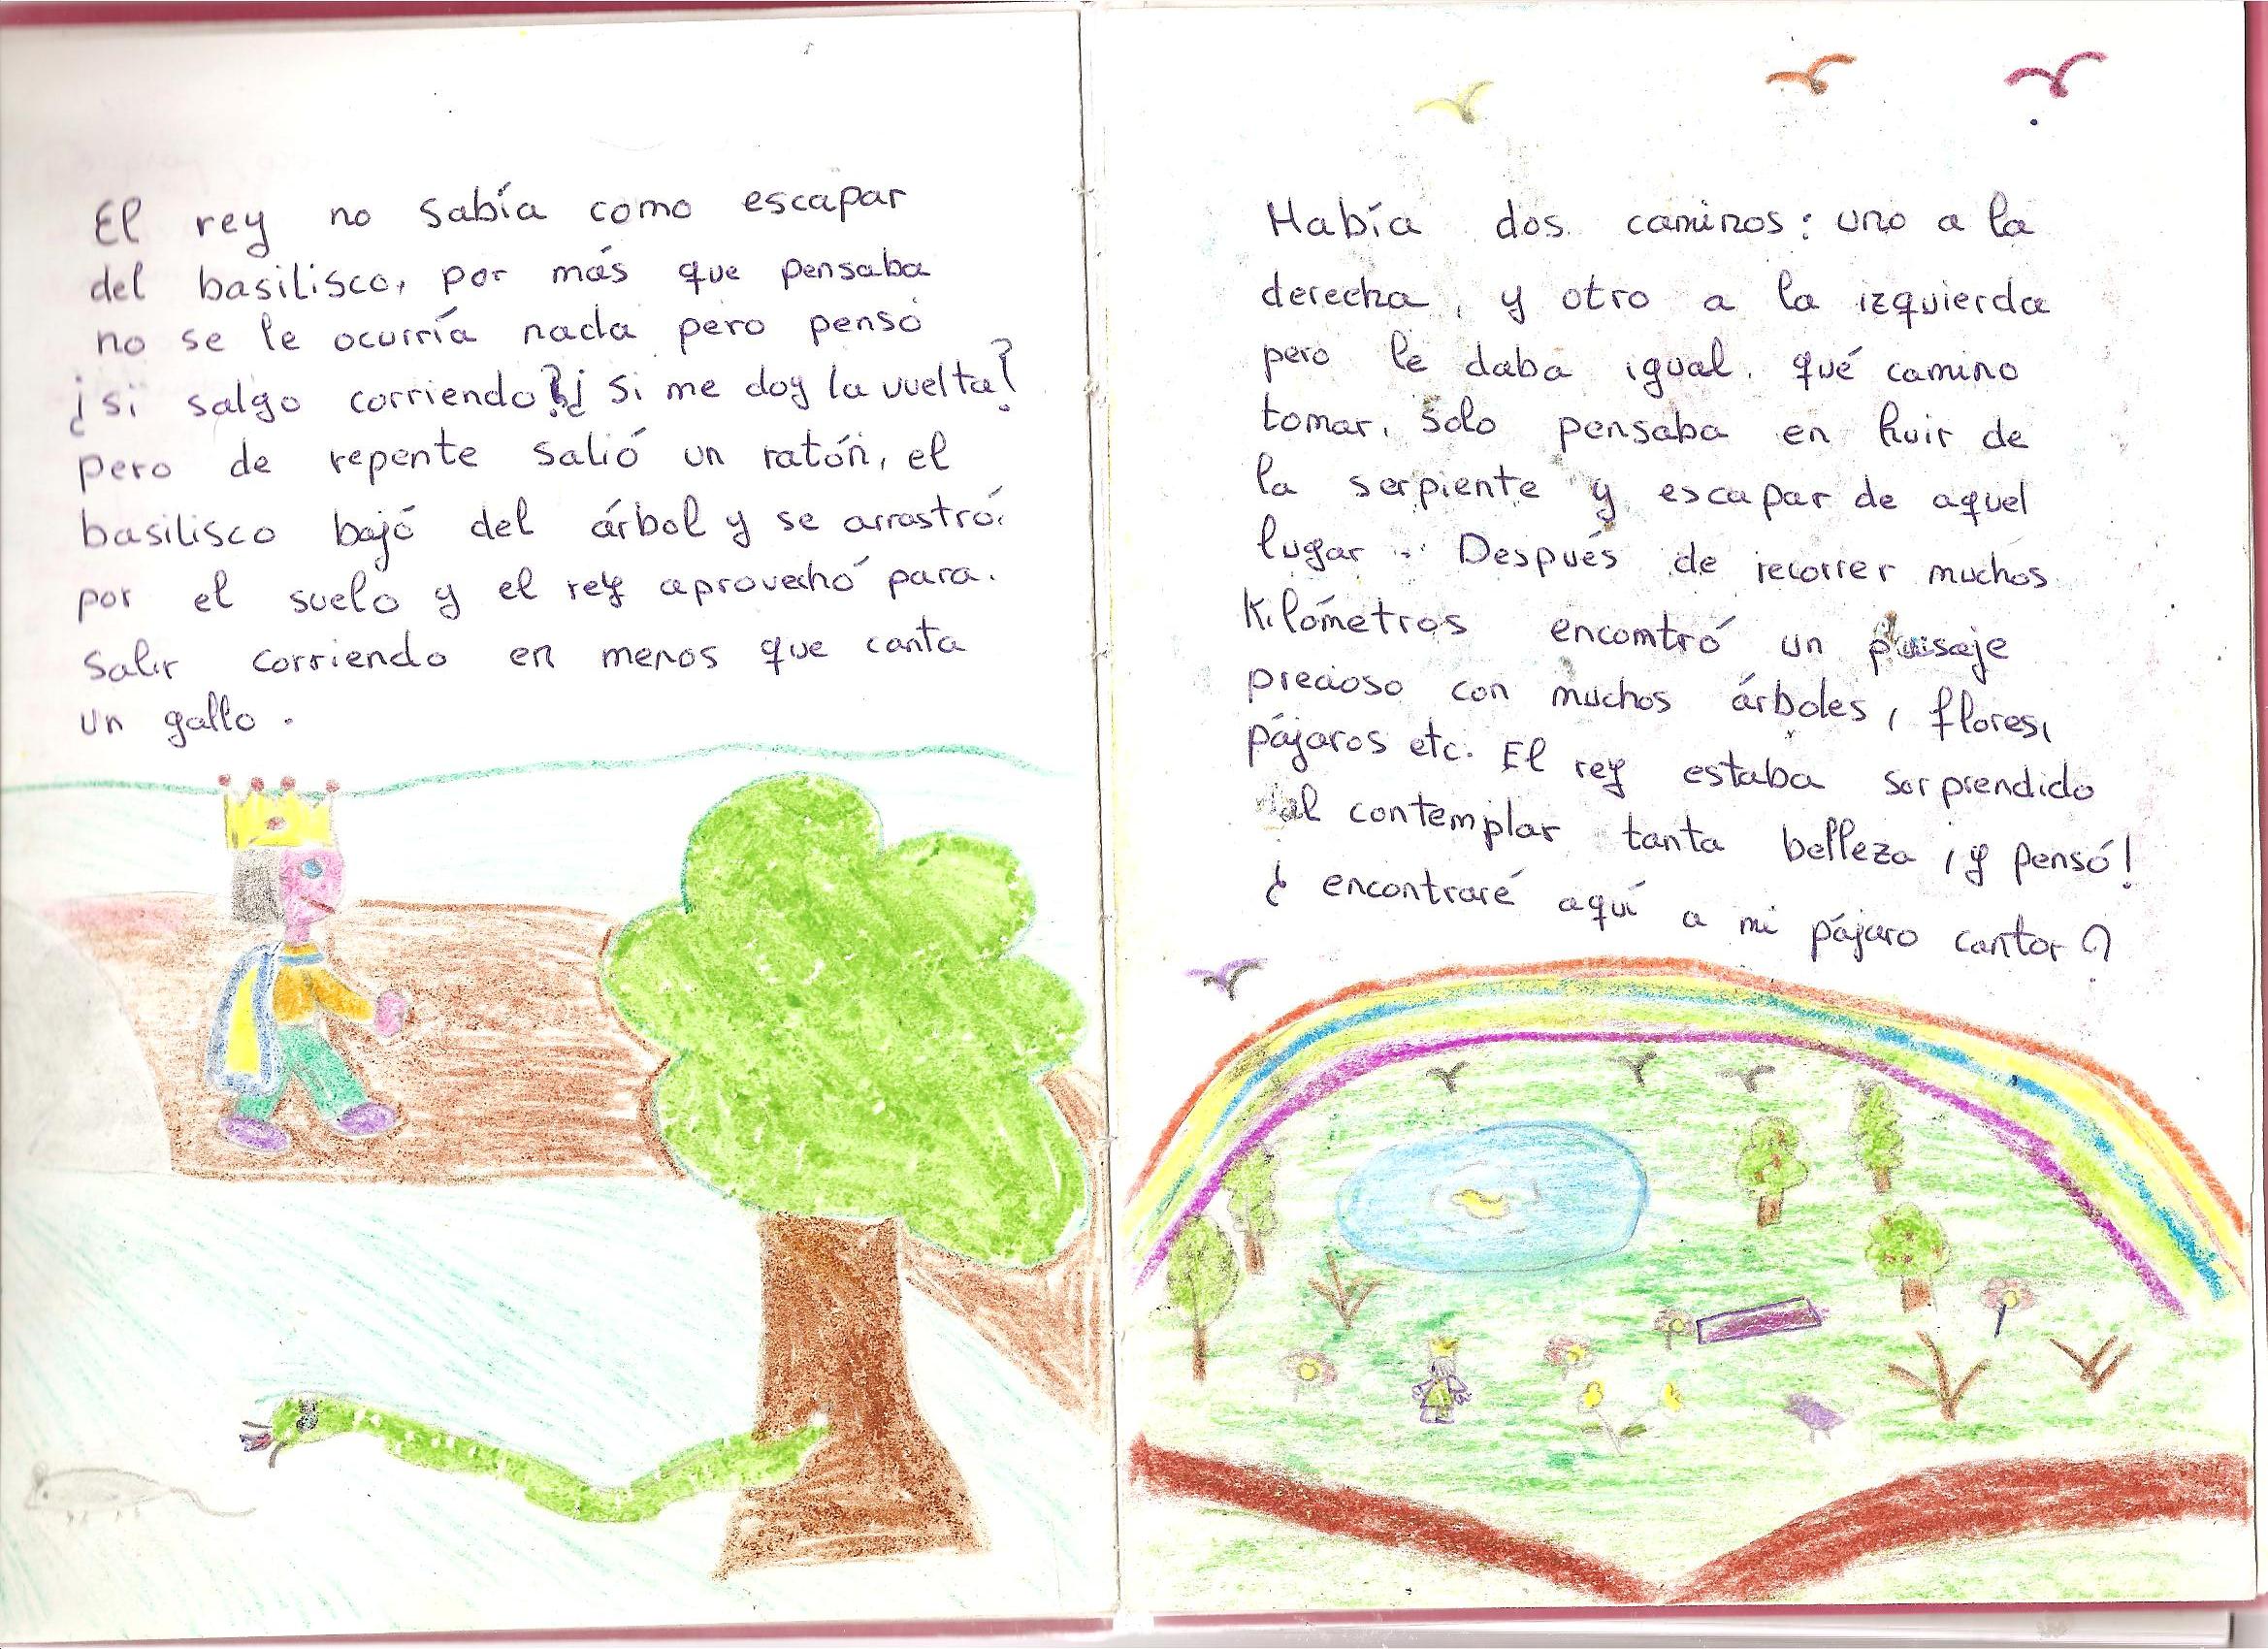 El rey no sabía como escapar
del basilisco, por más que pensaba
no se le ocurría nada pero pensó
¿¡si salgo corriendo?¿¡Si me doy la vuelta?!
pero de repente salió un ratón, el
basilisco bajó del árbol y se arrastró.
por el suelo y el rey aprovechó para.
salir corriendo en menos que canta
un gallo.
Había dos caminos: uno a la
derecha, y otro a la izquierda
pero le daba igual. qué camino
tomar, solo pensaba en huir de
la serpiente y escapar de aquel
lugar. Después de recorrer muchos
Kilómetros encomtró un paisaje
precioso con muchos árboles, flores,
pájaros etc. El rey estaba sorprendido
al contemplar tanta belleza ¡y pensó!
¿encontraré aquí a mi pájaro cantor?